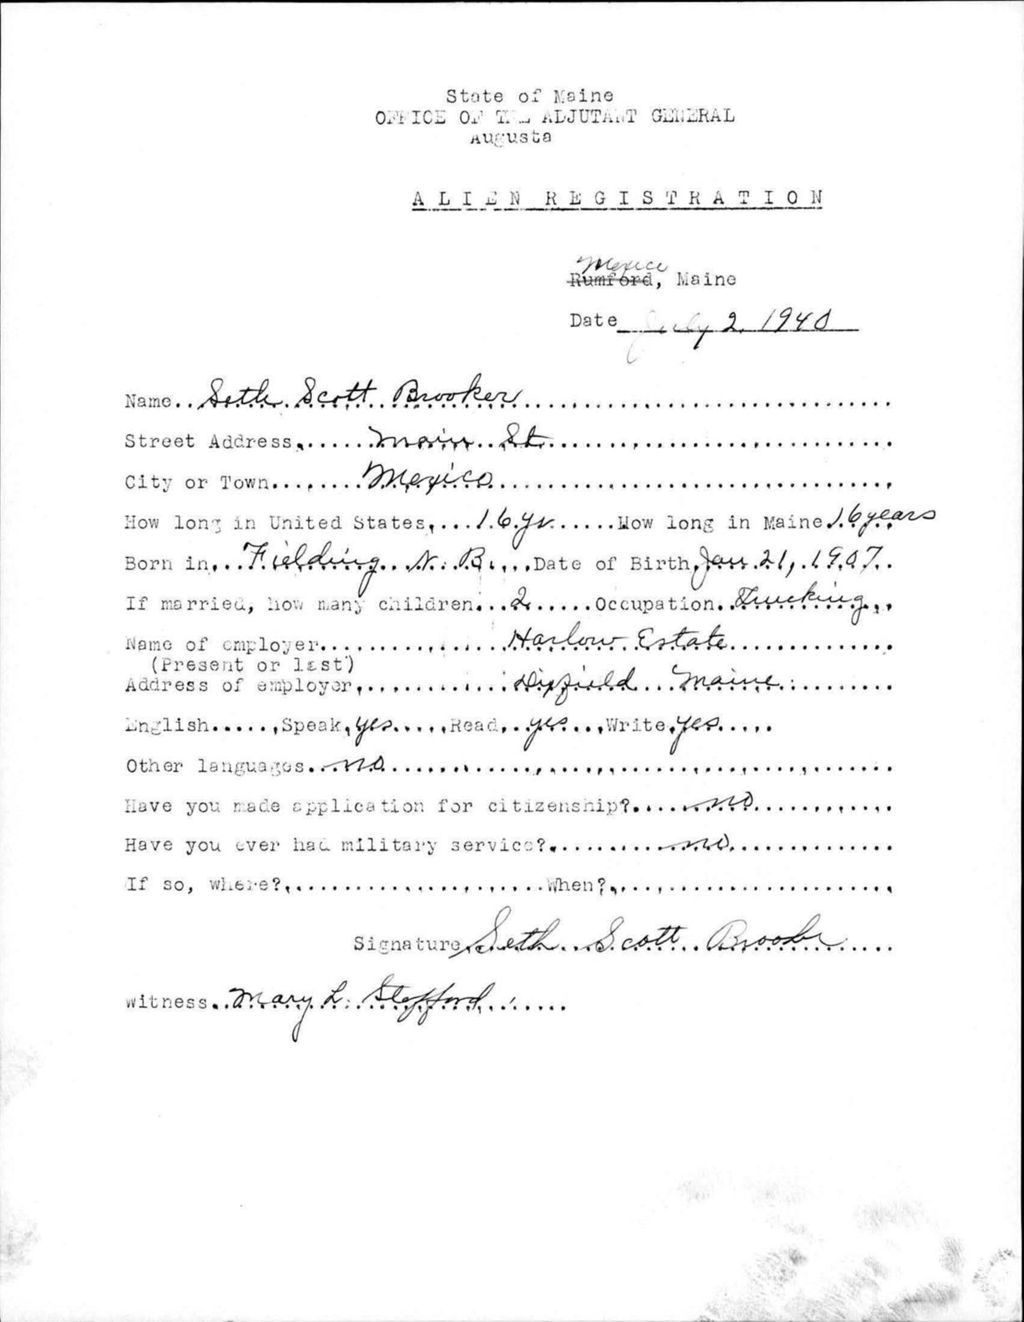 State of Maine
OFFICE OF THE ADJUTANT GENERAL
Augusta
ALIEN REGISTRATION
Mexico
Rumford, Maine
Date July 2, 1940
Name.. Seth Scott Brooker
Street Address...... Main St.
City or Town........ Mexico
How long in United States.... 16 yr. ......How long in Maine 16 years
Born in... Fielding N. B. ....Date of Birth, Jan. 21, 1907.
If married, how many children... 2 ......Occupation.. Trucking
Name of employer............... Harlow Estate
(Present or last)
Address of employer............ Dixfield Maine
English......Speak, yes .....Read,.. yes ....Write, yes
Other languages.. no
Have you made application for citizenship?..... no
Have you ever had military service?.......... no
If so, where?......................When?......................
Signature Seth Scott Brooker
Witness.. Mary L. Stafford